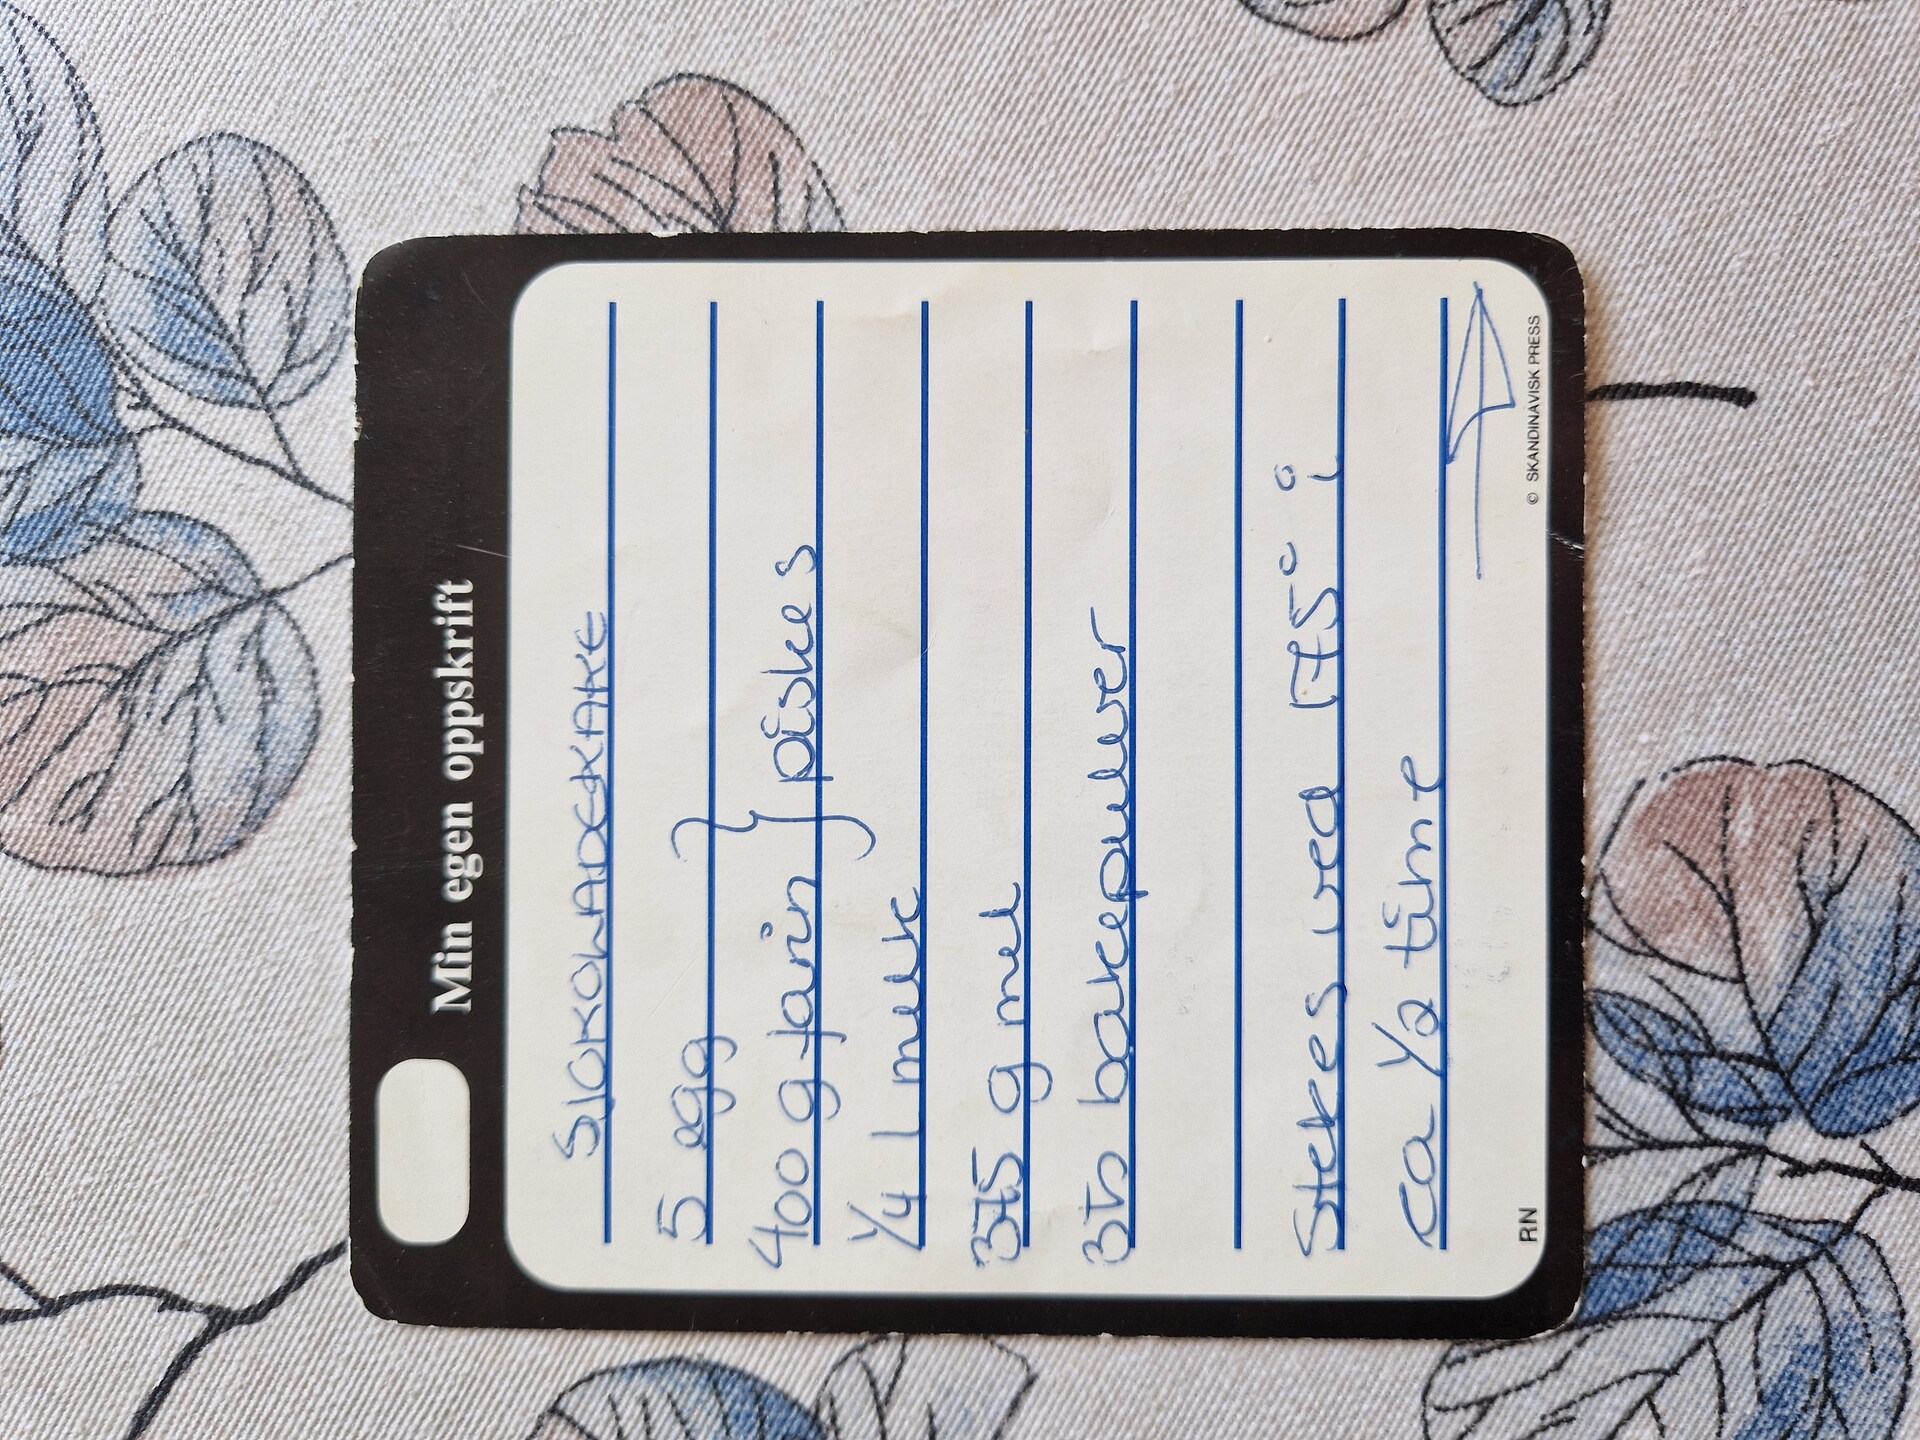 Min egen oppskrift
SJOKOLADEKAKE
5 egg
400 g farin } piskes
1/4 l melk
375 g mel
3 ts bakepulver
Stekes ved 175° i
ca 1/2 time
RN
© SKANDINAVISK PRESS